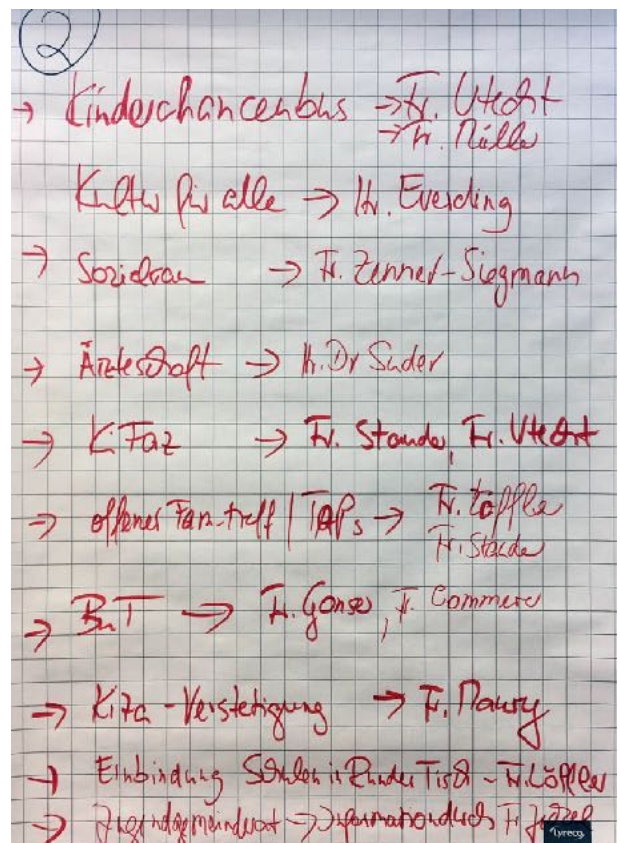 2
→ Kinderchancenbus → Fr. Utecht
→ Fr. Müller
Kultur für alle → Hr. Everding
→ Sozialraum → Fr. Zenner-Siegmann
→ Ärzteschaft → H. Dr Suder
→ KiFaz → Fr. Stauder, Fr. Utecht
→ offener Fam-treff | TAPs → Fr. Löffler
Fr. Stauder
→ BuT → Fr. Gonser, F. Commerc
→ Kita-Verstetigung → F. Maury
→ Einbindung Schulen in Runder Tisch - Fr. Löffler
→ Jugendgemeinderat → Information durch Fr.
lyreco